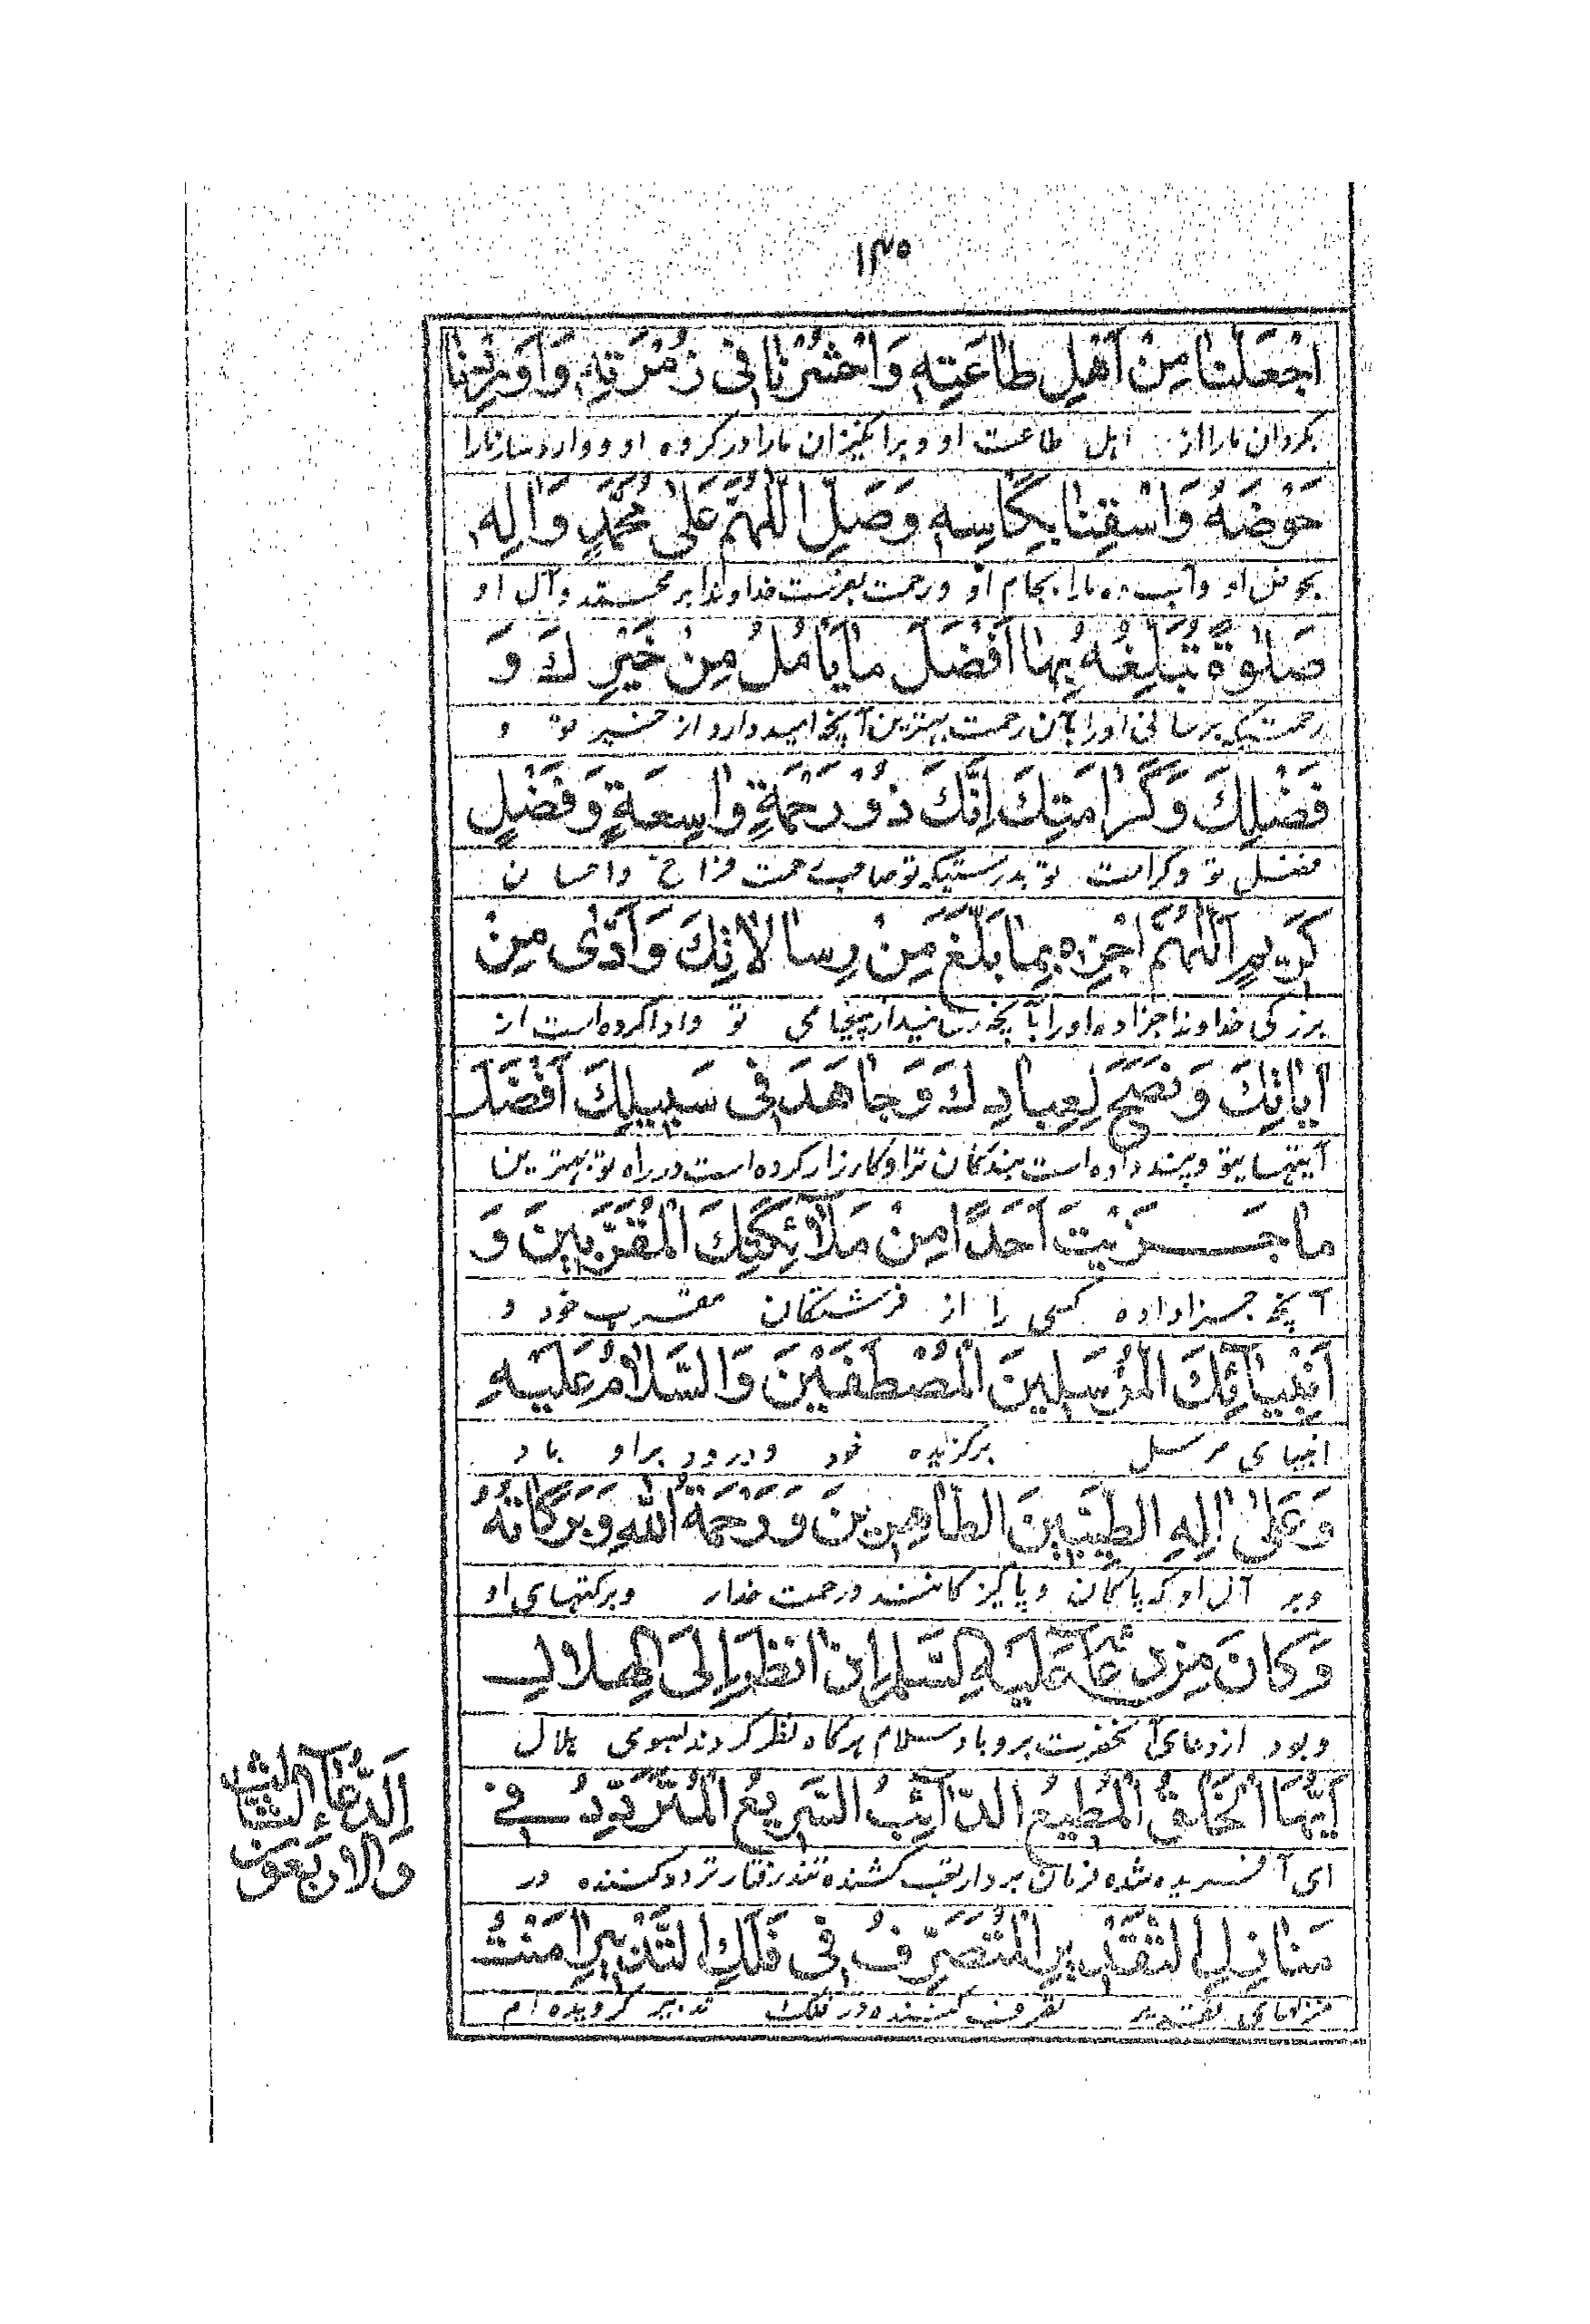 ۱۳۵
اجْعَلْنا مِنْ اَهْلِ طاعَتِهِ وَاحْشُرْنا فى زُمْرَتِهِ وَاَوْرِدْنا
بگردان ما را از اهل طاعت او و برانگیزان ما را در گروه او و وارد ساز ما را
حَوْضَهُ وَاسْقِنا بِكَاْسِهِ وَصَلِّ اللّهُمَّ عَلى مُحَمَّدٍ وَالِهِ
بحوض او و آب ده ما را بجام او و رحمت بفرست خداوندا بر محمد و آل او
صَلوةً تُبَلِّغُهُ بِها اَفْضَلَ ما يَأمُلُ مِنْ خَيْرِكَ وَ
رحمتیکه برسانی او را بآن رحمت بهترین آنچه امید دارد از خیر تو و
فَضْلِكَ وَكَرامَتِكَ اِنَّكَ ذُورَحْمَةٍ واسِعَةٍ وَفَضْلٍ
فضل تو و کرامت تو بدرستیکه تو صاحب رحمت فراخ و احسان
كَرِيمٍ اَللّهُمَّ اجْزِهِ بِما بَلَّغَ مِنْ رِسالاتِكَ وَاَدّى مِنْ
بزرگی خداوندا جزا ده او را بآنچه رسانید از پیغامهای تو و ادا کرده است از
اياتِكَ وَنَصَحَ لِعِبادِكَ وَجاهَدَ فى سَبيلِكَ اَفْضَلَ
آیتهای تو و پند داده است بندگان ترا و کارزار کرده است در راه تو بهترین
ما جَزَيْتَ اَحَدًا مِنْ مَلآئِكَتِكَ الْمُقَرَّبينَ وَ
آنچه جزا داده کسی را از فرشتگان مقرب خود و
اَنْبِيآئِكَ الْمُرْسَلينَ الْمُصْطَفَيْنَ وَالسَّلامُ عَلَيْهِ
انبیای مرسل برگزیده خود و درود بر او باد
وَعَلى الِهِ الطَّيِّبينَ الطّاهِرينَ وَرَحْمَةُ اللّهِ وَبَرَكاتُهُ
و بر آل او که پاکان و پاکیزگانند و رحمت خدا و برکتهای او
وَكانَ مِنْ دُعآئِهِ عَلَيْهِ السَّلامُ اِذا نَظَرَ اِلَى الْهِلالِ
و بود از دعای آنحضرت بر او باد سلام هرگاه نظر کردند بسوی هلال
اَيُّهَا الْخَلْقُ الْمُطيعُ الدّآئِبُ السَّريعُ الْمُتَرَدِّدُ فى
ای آفریده شده فرمان بردار تعب کشنده تند رفتار تردد کننده در
مَنازِلِ التَّقْديرِ الْمُتَصَرِّفُ فى فَلَكِ التَّدْبيرِ امَنْتُ
منزلهای تقدیر تصرف کننده در فلک تدبیر گرویده ام
اَلدُّعآءُ الثّالِثُ
وَالاَرْبَعُونَ